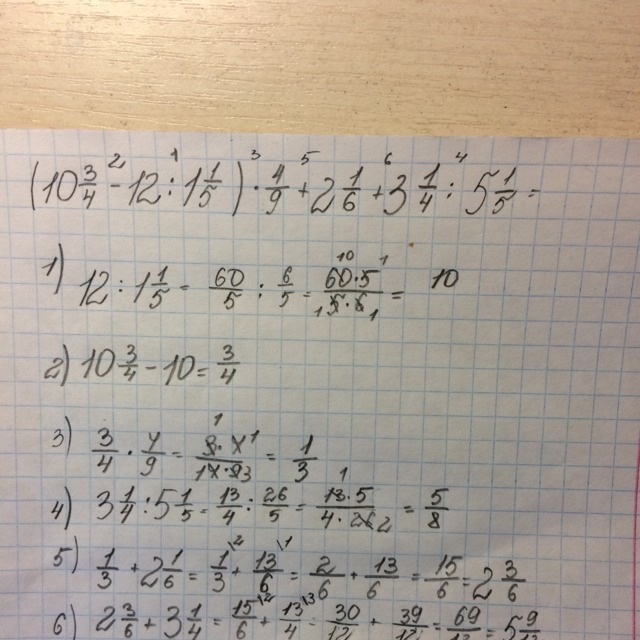 (10 3/4 - 12 : 1 1/5) · 4/9 + 2 1/6 + 3 1/4 : 5 1/5 =
1) 12 : 1 1/5 = 60/5 : 6/5 = 60·5/5·6 = 10
2) 10 3/4 - 10 = 3/4
3) 3/4 · 4/9 = 3·4/4·9 = 1/3
4) 3 1/4 : 5 1/5 = 13/4 : 26/5 = 13·5/4·26 = 5/8
5) 1/3 + 2 1/6 = 1/3 + 13/6 = 2/6 + 13/6 = 15/6 = 2 3/6
6) 2 3/6 + 3 1/4 = 15/6 + 13/4 = 30/12 + 39/12 = 69/12 = 5 9/12